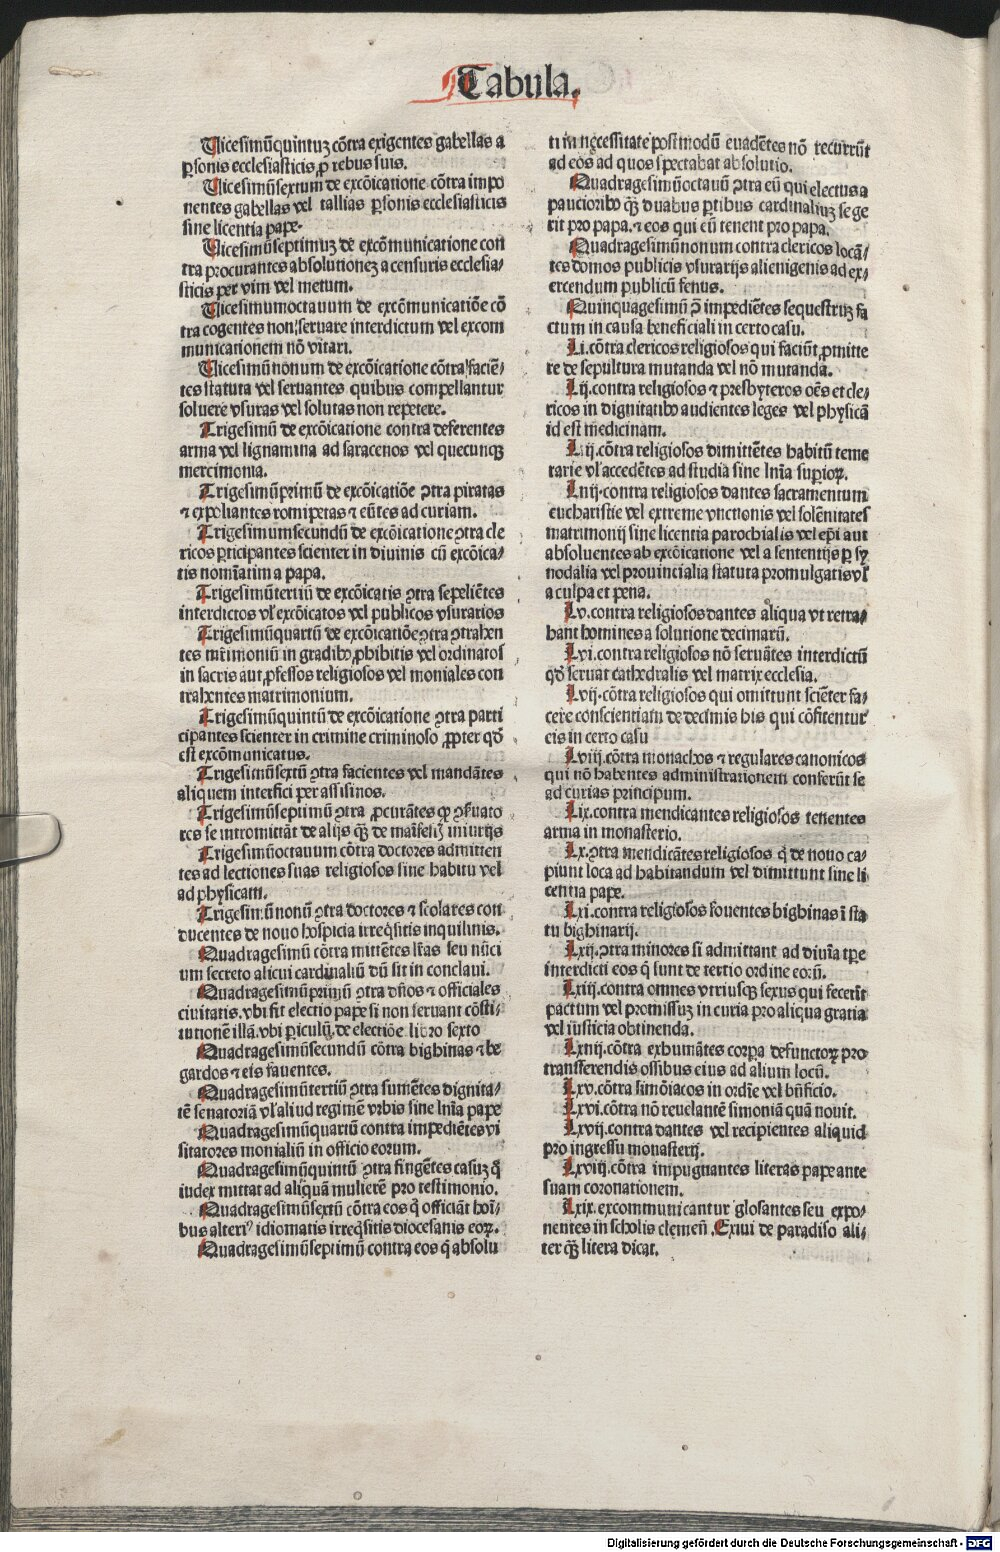 Tabula.
Uicesimūquintuʒ cōtra exigentes gabellas a
ꝑsonis ecclesiasticis ꝓ rebus suis.
Uicesimūsextum de excōicatione cōtra impo
nentes gabellas vel tallias ꝑsonis ecclesiasticis
sine licentia pape.
Uicesimūseptimuʒ de excōmunicatione con
tra procurantes absolutioneʒ a censuris ecclesia⸗
sticis per vim vel metum.
Uicesimumoctauum de excōmunicatiōe cō
tra cogentes non seruare interdictum vel excom
municationem nō vitari.
Uicesimūnonum de excōicatione cōtra faciē⸗
tes statuta vel seruantes quibus compellantur
soluere vsuras vel solutas non repetere.
Trigesimū de excōicatione contra deferentes
arma vel lignamina ad saracenos vel quecunqʒ
mercimonia.
Trigesimūprimū de excōicatiōe ꝯtra piratas
⁊ expoliantes romipetas ⁊ eūtes ad curiam.
Trigesimumsecundū de excōicatione ꝯtra cle
ricos ꝑticipantes scienter in diuinis cū excōica⸗
tis nomīatim a papa.
Trigesimūtertiū de excōicatis ꝯtra sepeliētes
interdictos vl̓ excōicatos vel publicos vsurarios
Trigesimūquartū de excōicatiōe ꝯtra ꝯtrahen
tes mr̄imoniū in gradibꝰ ꝓhibitis vel ordinatos
in sacris aut ꝓfessos religiosos vel moniales con
trahentes matrimonium.
Trigesimūquintū de excōicatione ꝯtra parti
cipantes scienter in crimine criminoso ꝓpter qd̄
est excōmunicatus.
Trigesimūsextū ꝯtra facientes vel mandātes
aliquem interfici per assisinos.
Trigesimūseptimū ꝯtra ꝓcurātes qꝫ ꝯseruato
res se intromittāt de alijs qꝫ̄ de māifestꝭ iniurijs
Trigesimūoctauum cōtra doctores admitten
tes ad lectiones suas religiosos sine habitu vel
ad physicam.
Trigesimūnonū ꝯtra doctores ⁊ scolares con
ducentes de nouo hospicia irreq̄sitis inquilinis.
Quadragesimū cōtra mittētes lr̄as seu nūci
um secreto alicui cardinaliū dū sit in conclaui.
Quadragesimūprimū ꝯtra dn̄os ⁊ officiales
ciuitatis. vbi fit electio pape si non seruant cōsti⸗
tutionē illā. vbi ꝑiculuʒ. de electiōe libro sexto
Quadragesimūsecundū cōtra bighinas ⁊ be
gardos ⁊ eis fauentes.
Quadragesimūtertiū ꝯtra sumētes dignita⸗
tē senatoriā vl̓ aliud regimē vrbis sine lnīa pape
Quadragesimūquartū contra impediētes vi
sitatores monialiū in officio eorum.
Quadragesimūquintū ꝯtra fingētes casuʒ q̄
iudex mittat ad aliquā mulierē pro testimonio.
Quadragesimūsextū cōtra eos q̄ officiāt hoī⸗
bus alteriꝰ idiomatis irreq̄sitis diocesanis eoꝝ.
Quadragesimūseptimū contra eos q̄ absolu
ti in necessitate postmodū euadētes nō recurrūt
ad eos ad quos spectabat absolutio.
Quadragesimūoctauū ꝯtra eū qui electus a
paucioribꝰ qꝫ̄ duabus ꝑtibus cardinaliuʒ se ge
rit pro papa. ⁊ eos qui eū tenent pro papa.
Quadragesimūnonum contra clericos locā⸗
tes domos publicis vsurarijs alienigenis ad ex⸗
ercendum publicū fenus.
Quinquagesimū ꝯ̄ impediētes sequestruʒ fa
ctum in causa beneficiali in certo casu.
Li. cōtra clericos religiosos qui faciūt ꝓmitte
re de sepultura mutanda vel nō mutanda.
Lij. contra religiosos ⁊ presbyteros oēs et cle⸗
ricos in dignitatibꝰ audientes leges vel physicā
id est medicinam.
Liij. cōtra religiosos dimittētes habitū teme
rarie vl̓ accedētes ad studia sine lnīa suꝑioꝝ.
Liiij. contra religiosos dantes sacramentum
eucharistie vel extreme vnctionis vel solēnitates
matrimonij sine licentia parochialis vel ep̄i aut
absoluentes ab excōicatione vel a sententijs ꝑ sy
nodalia vel prouincialia statuta promulgatis vl̓
a culpa et pena.
Lv. contra religiosos dantes aliqua vt retra⸗
hant homines a solutione decimarū.
Lvi. contra religiosos nō seruātes interdictū
qd̄ seruat cathedralis vel matrix ecclesia.
Lvij. cōtra religiosos qui omittunt sciēter fa⸗
cere conscientiam de decimis his qui cōfitentur
eis in certo casu
Lviij. cōtra monachos ⁊ regulares canonicos
qui nō habentes administrationem conferūt se
ad curias principum.
Lix. contra mendicantes religiosos tenentes
arma in monasterio.
Lx. ꝯtra mendicātes religiosos q̄ de nouo ca⸗
piunt loca ad habitandum vel dimittunt sine li
centia pape.
Lxi. contra religiosos fouentes bighinas ī sta
tu bighinarij.
Lxij. ꝯtra minores si admittant ad diuīa tꝑe
interdicti eos q̄ sunt de tertio ordine eorū.
Lxiij. contra omnes vtriusqʒ sexus qui fecerīt
pactum vel promissuʒ in curia pro aliqua gratia
vel iusticia obtinenda.
Lxiiij. cōtra exhumātes corꝑa defunctoꝝ pro
transferendis ossibus eius ad alium locū.
Lxv. cōtra simōiacos in ordīe vel bn̄ficio.
Lxvi. cōtra nō reuelantē simoniā quā nouit.
Lxvij. contra dantes vel recipientes aliquid
pro ingressu monasterij.
Lxviij. cōtra impugnantes literas pape ante
suam coronationem.
Lxix. excommunicantur glosantes seu expo⸗
nentes in scholis clemen̄. Exiui de paradiso ali⸗
ter qꝫ̄ litera dicat.
Digitalisierung gefördert durch die Deutsche Forschungsgemeinschaft - DFG